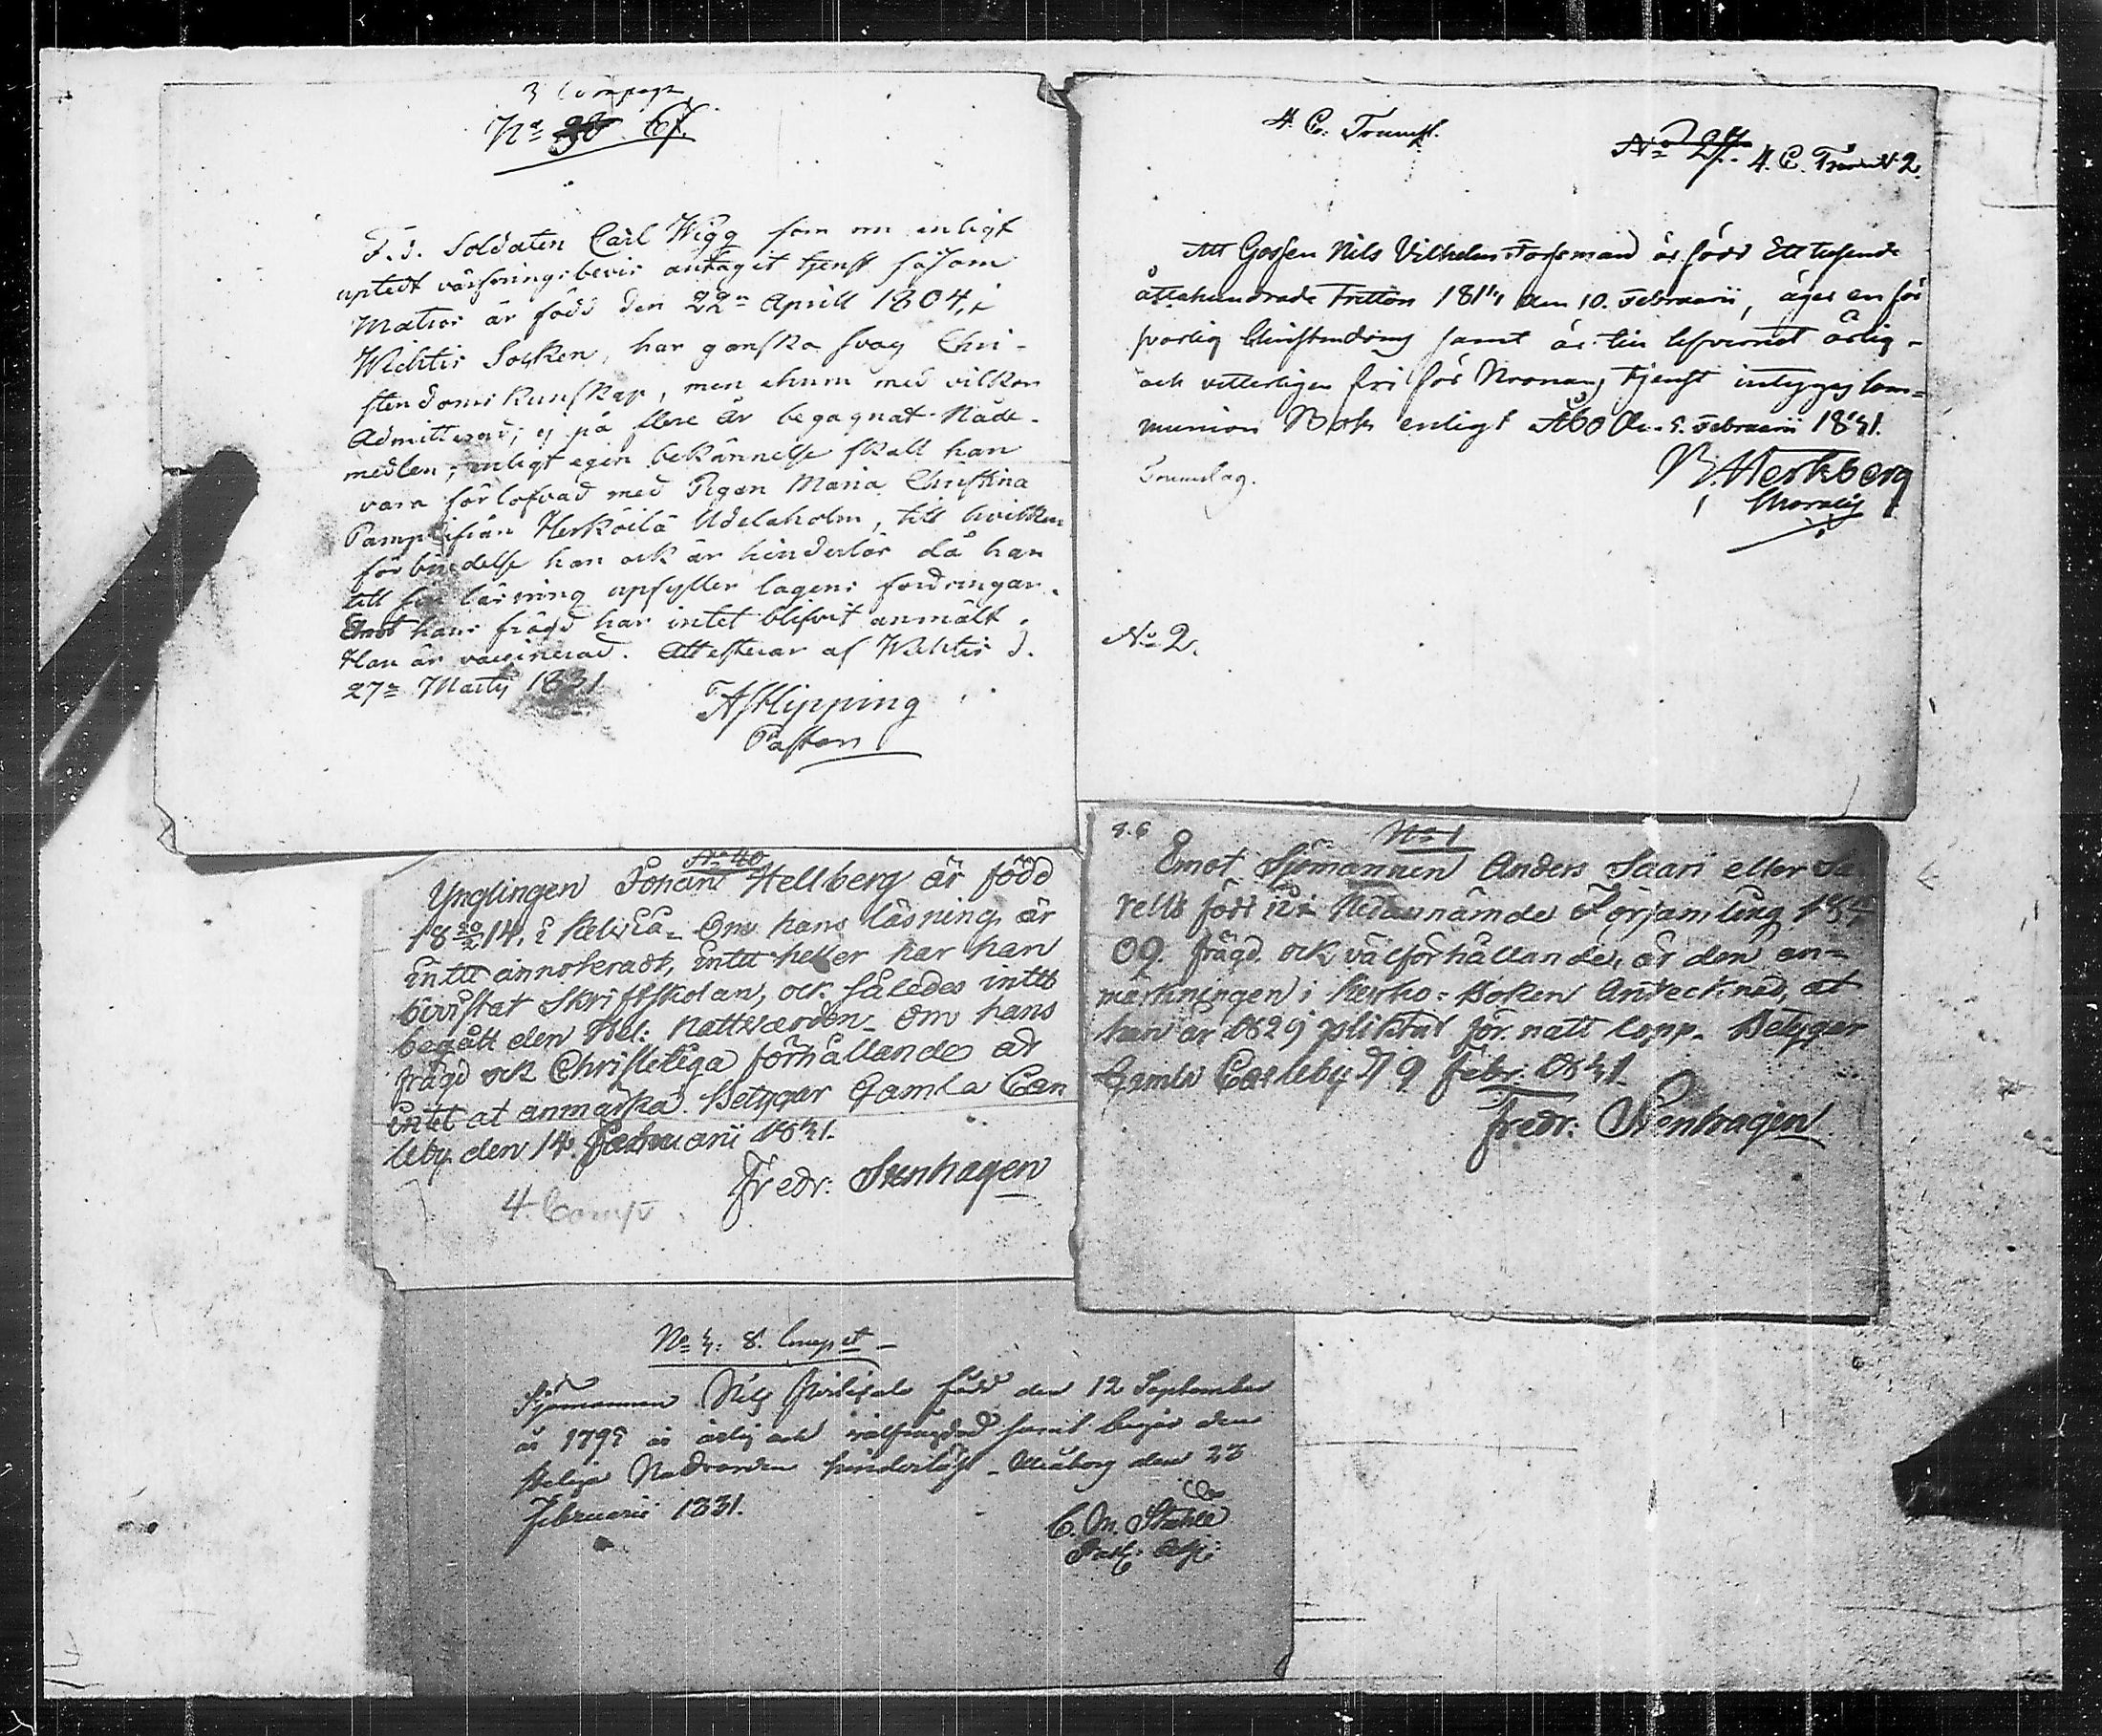 3 Compagn.
No 67.
F.d. Soldaten Carl Wigg som nu enligt
uptedt värfningsbevis antagit tjenst såsom
Matros är född den 22n Aprill 1804, i
Wichtis Socken, har ganska svag Chri-
stendoms kunskap, men ehuru med vilkor
Admitterad, ej på flere år begagnat Nåde-
medlen; enligt egen bekännelse skall han
vara förlofvad med Pigan Maria Christina
från Herköilä Udelaholm, till hvilken
förbindelse han ock är hinderlös då han
till sin läsning upfyller lagens fordringar.
Emot hans frägd har intet blifvit anmält.
Han är vaccinerad. Attesterar af Wichtis d.
27n Martii 1831.
Hipping
Pastor
4. C. Trumsl.
No 27. 4. C. No 2.
Att Gossen Nils Vilhelm Forsman är född Ett tusende
åttahundrade Tretton 1813 den 10. Februarii, äger en för-
svarlig Christendom samt är till lefvernet ärlig
och vitterligen fri för Kronans tjenst intygas
munion Bok enligt Åbo 5. Februarii 1831.
Trumslag.
No 2.
No 40
Ynglingen Johan Hellberg är född
18 20/2 14, i Kelviå. Om hans läsning är
intet annoteradt, intet heller har han
bivistat Skriftskolan, och således intet
begått den Hel: Nattvarden. Om hans
frägd och Christeliga förhållande är
intet at anmärka. Betygar Gamla Car
leby den 14. Februarii 1831.
Fredr: Stenhagen
4. Comp
8. C
No 1
Emot Sjömannen Anders Saari eller Sa
rells född i Nedannämde Församling
09. frägd och välförhållande, är den an-
märkningen i Kyrko-Boken Antecknad, at
han år 1829 pliktat för natt lopp. Betygar
Gamla Carleby d 9 Febr: 1831.
Fredr: Stenhagen
No 4: 8. Comp
Sjömannen Nils född den 12 September
år 1795 är ärlig och välfrägdad samt begår den
Helga Nattvarden hinderlöst. Uleåborg den 23
Februarii 1831.
C. M. Ståhle